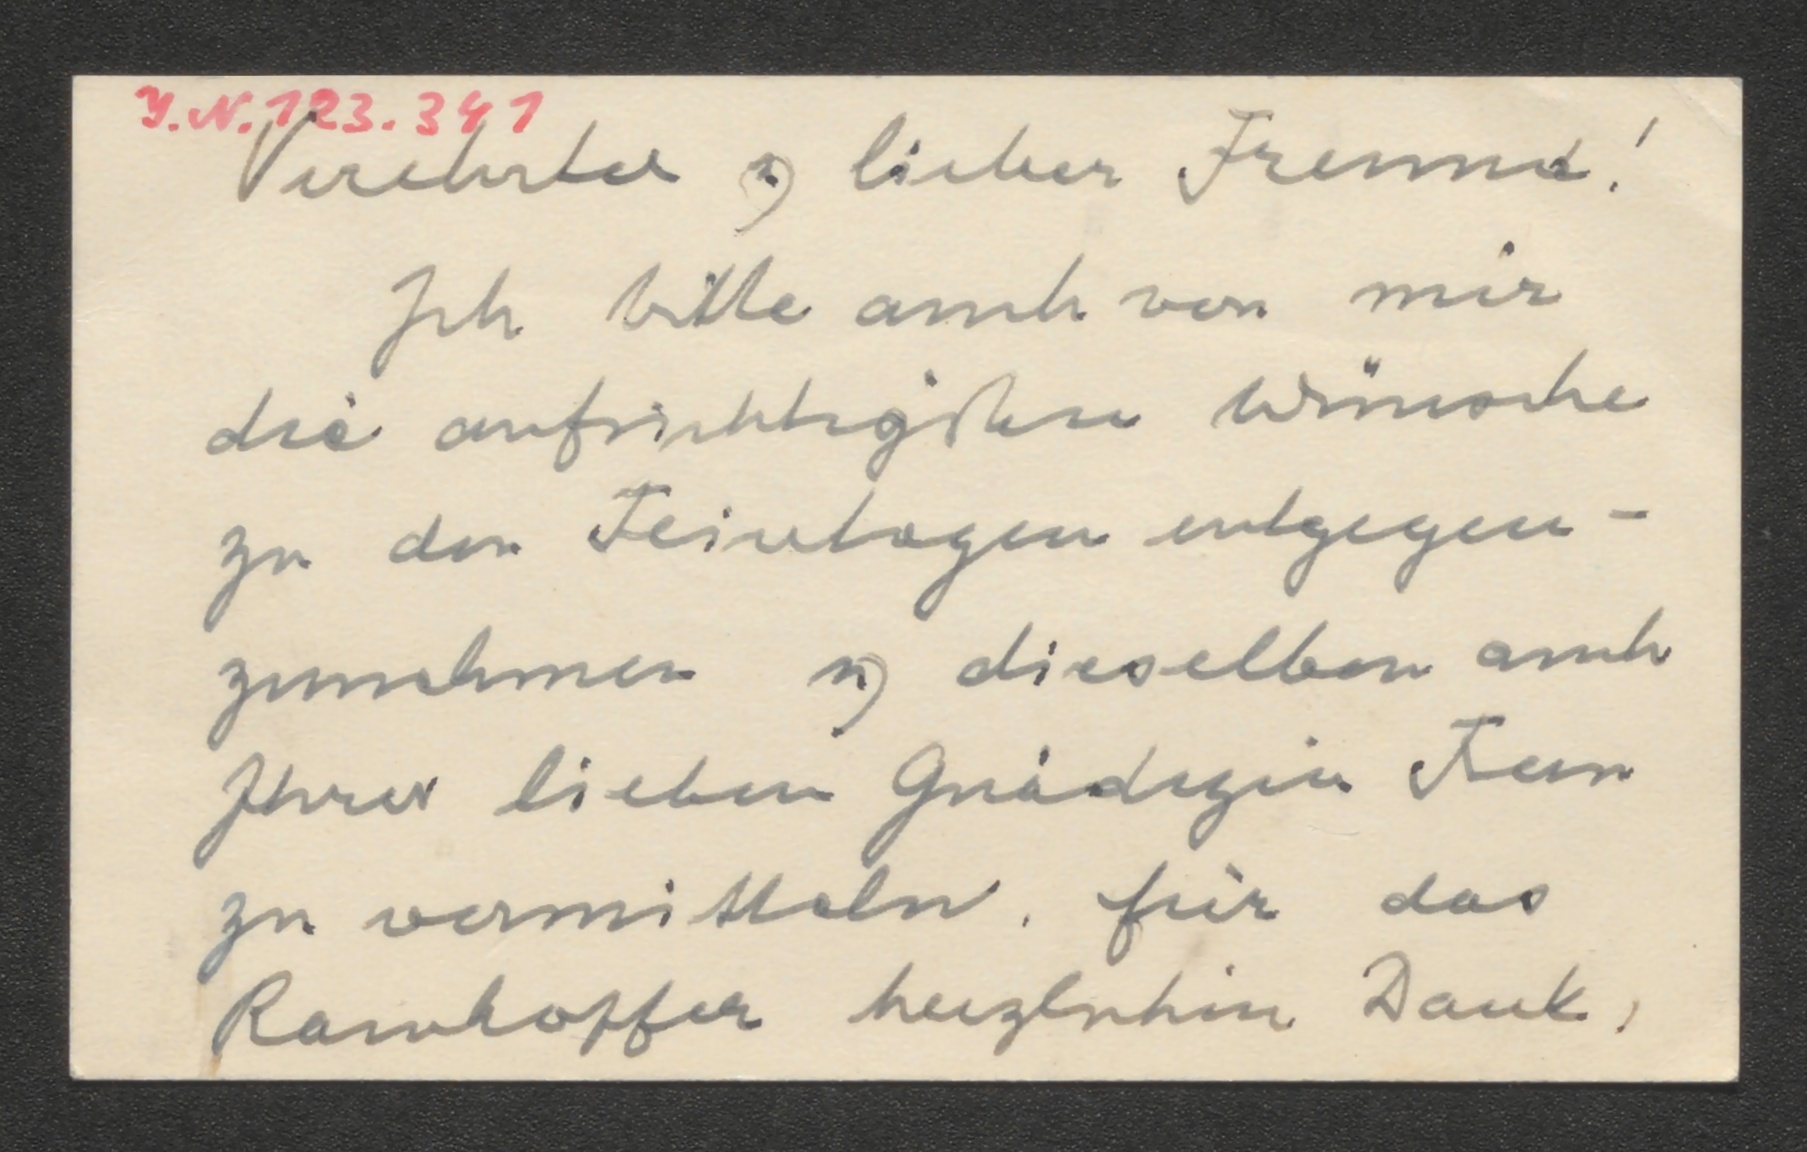 J.N. 123.341
Verehrter u lieber Freund!
Ich bitte auch von mir
die aufrichtigsten Wünsche
zu den Feiertagen entgegen-
zunehmen u dieselben auch
Ihrer lieben Gnädigen Frau
zu vermitteln. für das
herzlichen Dank,